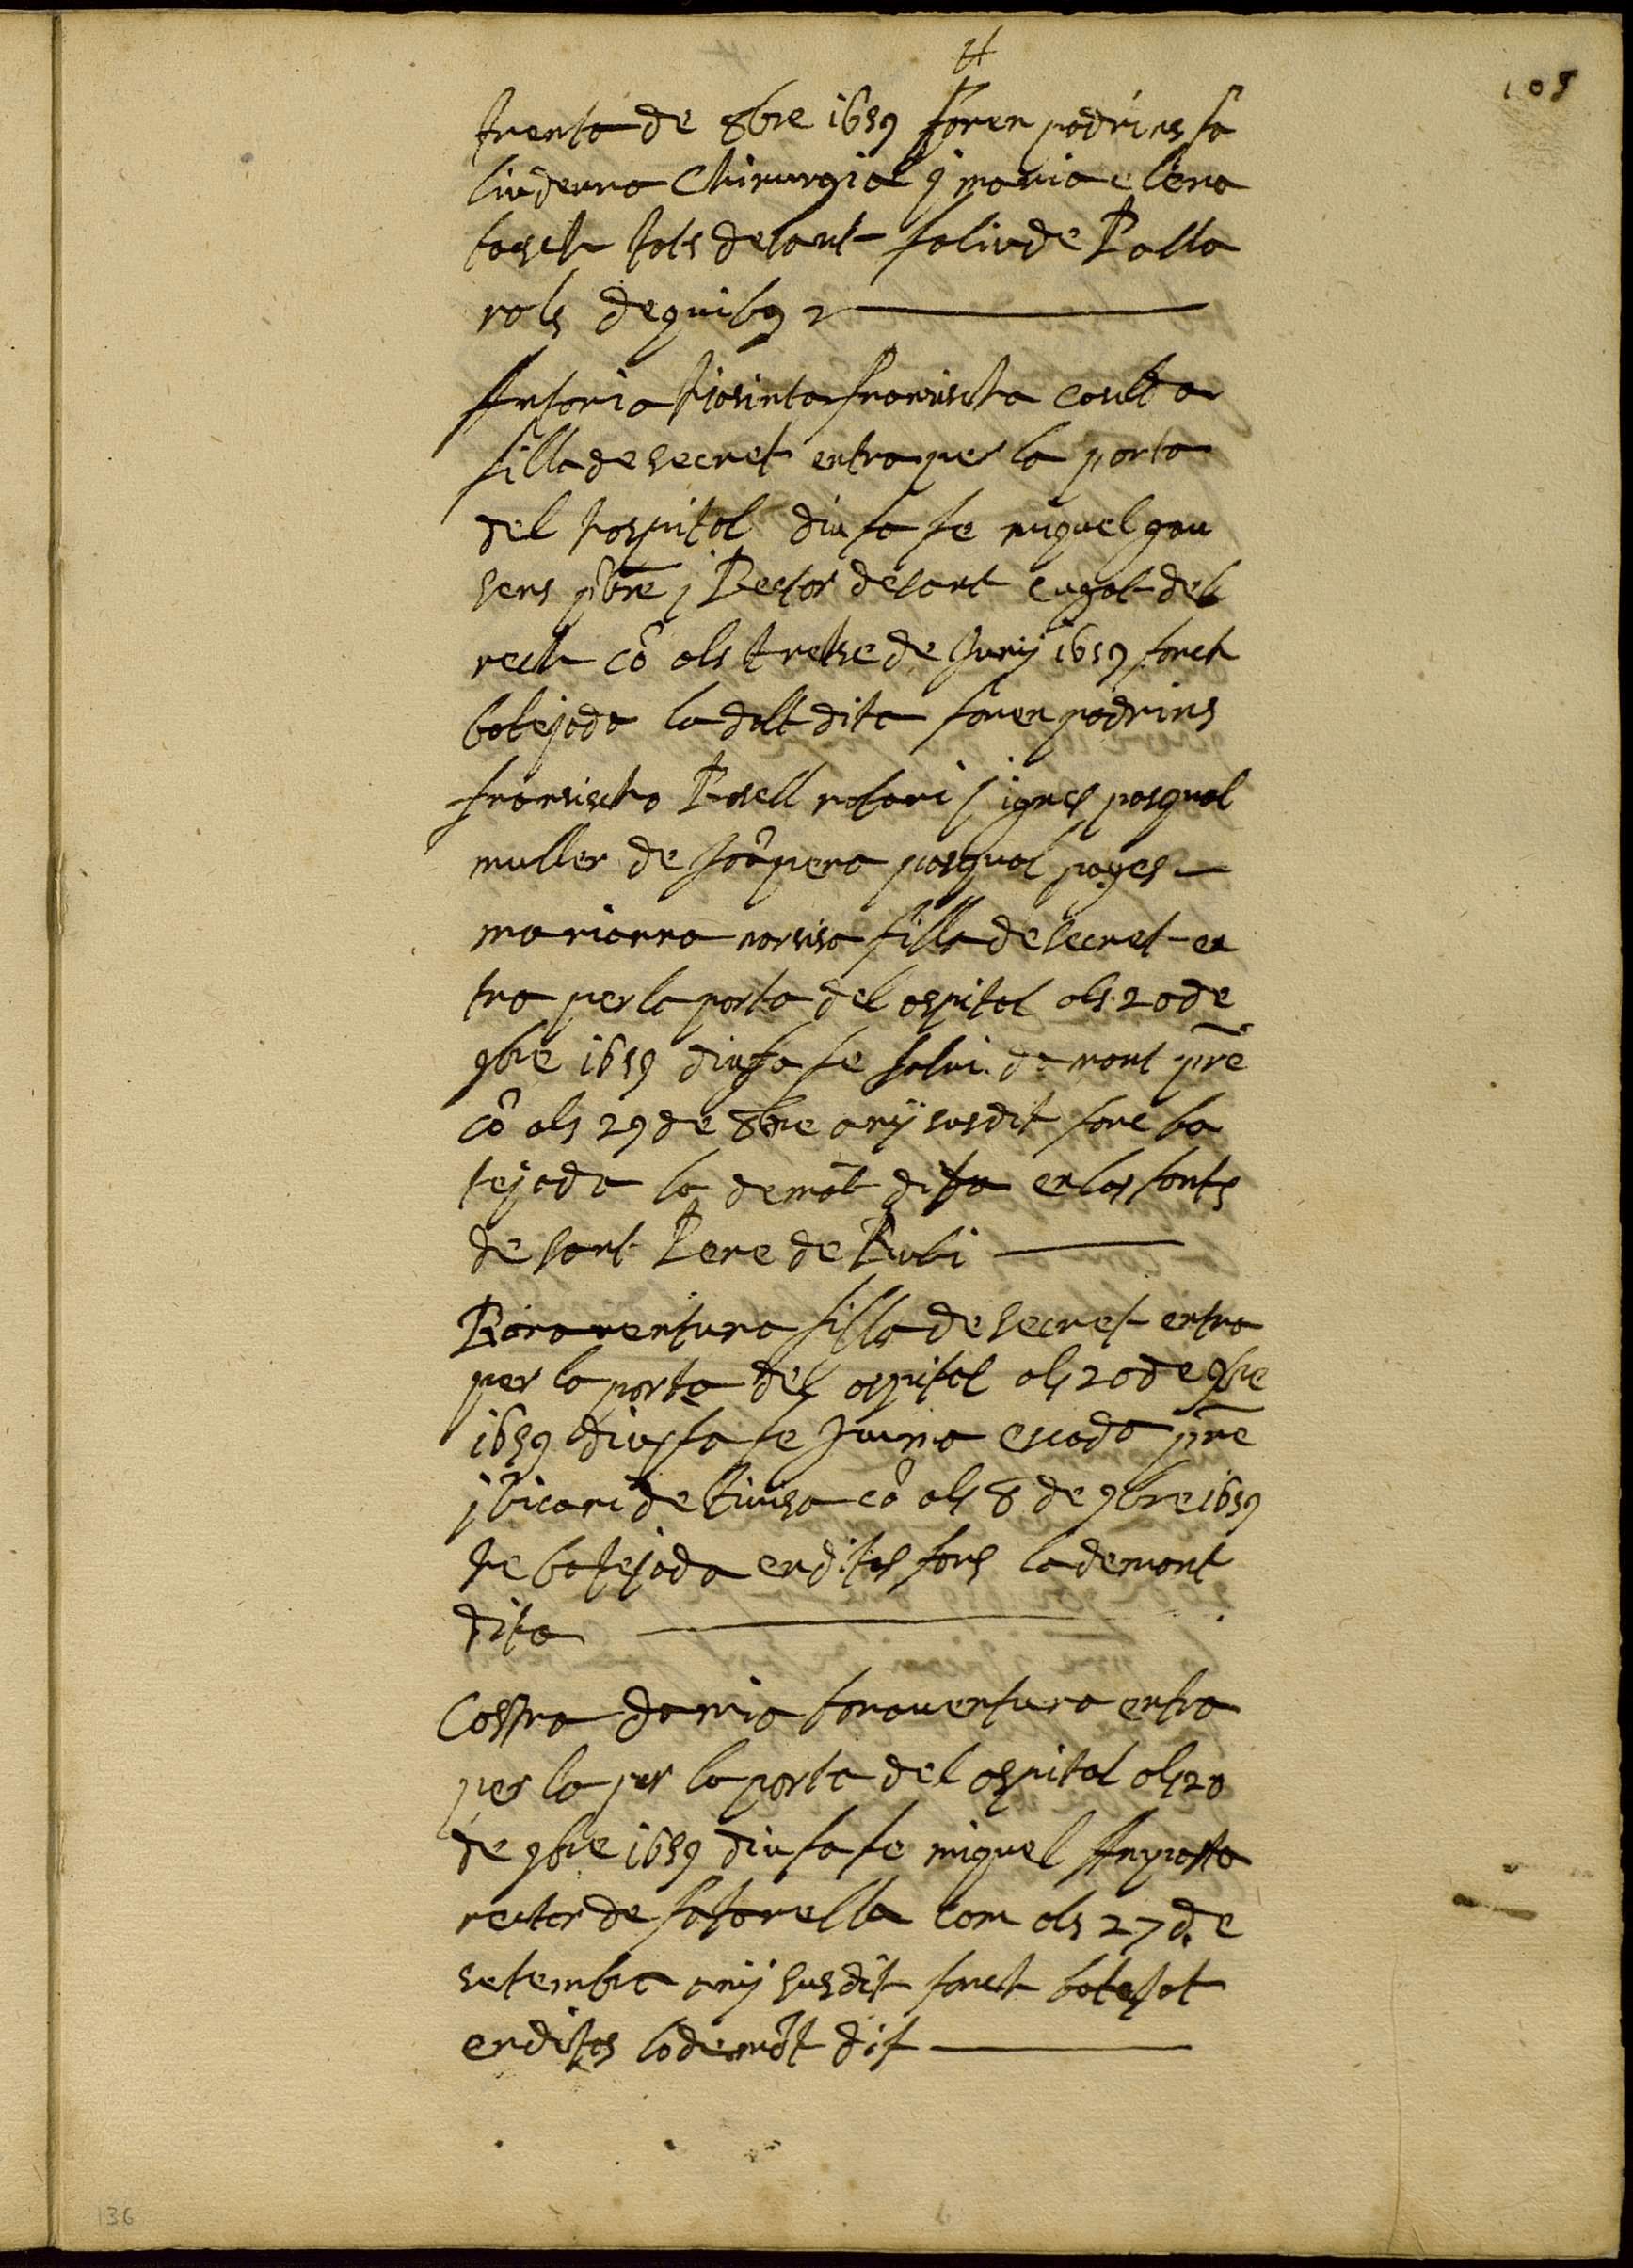 108
trenta de 8bre 1659 foren padrins sa
Chirurgia y maria elena
bosch tots de sant faliu de Palla
rols de quibus
Antonia Hiasinta Fransischa
filla de secret entra per la porta
del hospital diu fa fe miquel gau
sens pbre y Rector de sant cugat del
rech cô als tretse de Juny 1659 fonch
batejada la dalt dita foren padrins
fransischo Rosell notari y ignes pasqual
muller de Joâ pera pasqual pages
marianna narsisa filla de secret en
tra per la porta del ospital als 20 de
9bre 1659 diu fa fe salvi da mont pre
cô als 29 de 8bre any susdit fonc ba
tejada la demôt dita en las fonts
de sant Pere de Rubi
Bonaventura filla de secret entra
per la porta del ospital als 20 de 9bre
1659 diu fa fe Jauma pre
y Vicari de cô als 8 de 9bre 1659
he batejada en ditas fons la demont
dita
Cosma damia bonaventura entra
per la per la porta del ospital als 20
de 9bre 1659 diu fa fe miquel Anposta
rector de fatarella com als 27 de
setembre any susdit fonch batejat
en ditas lo demôt dit
136